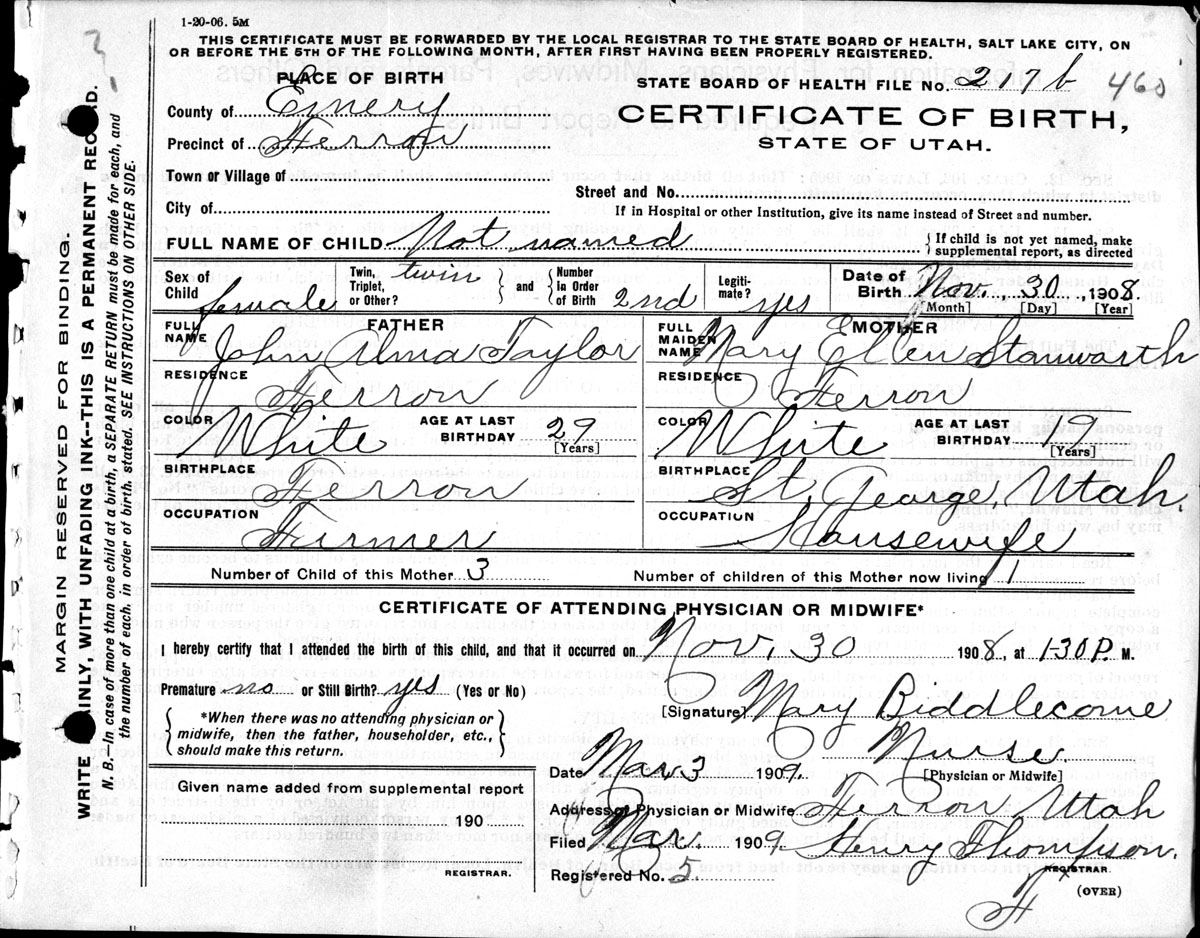 1-20-06. 5M
THIS CERTIFICATE MUST BE FORWARDED BY THE LOCAL REGISTRAR TO THE STATE BOARD OF HEALTH, SALT LAKE CITY, ON
OR BEFORE THE 5TH OF THE FOLLOWING MONTH, AFTER FIRST HAVING BEEN PROPERLY REGISTERED.
PLACE OF BIRTH
STATE BOARD OF HEALTH FILE No. 217 b 460
County of Emery
CERTIFICATE OF BIRTH,
Precinct of Ferron
STATE OF UTAH.
Town or Village of
Street and No.
City of
If in Hospital or other Institution, give its name instead of Street and number.
FULL NAME OF CHILD Not named { If child is not yet named, make
supplemental report, as directed
Sex of Child female Twin, Triplet, or Other? twin { and } Number in Order of Birth 2nd Legitimate? yes Date of Birth Nov. 30, 1908.
[Month] [Day] [Year]
FATHER
FULL NAME John Alma Taylor
RESIDENCE Ferron
COLOR White AGE AT LAST BIRTHDAY 29 [Years]
BIRTHPLACE Ferron
OCCUPATION Farmer
MOTHER
FULL MAIDEN NAME Mary Ellen Stanwarth
RESIDENCE Ferron
COLOR White AGE AT LAST BIRTHDAY 19 [Years]
BIRTHPLACE St. George, Utah.
OCCUPATION Housewife
Number of Child of this Mother 3 Number of children of this Mother now living 1
CERTIFICATE OF ATTENDING PHYSICIAN OR MIDWIFE*
I hereby certify that I attended the birth of this child, and that it occurred on Nov. 30 1908, at 1-30 P. M.
Premature no or Still Birth? yes (Yes or No)
[Signature] Mary Biddlecome
{ *When there was no attending physician or
midwife, then the father, householder, etc.,
should make this return. }
Nurse.
[Physician or Midwife]
Date Mar 3 1909.
Address of Physician or Midwife Ferron, Utah
Filed Mar. 1909. Henry Thompson.
REGISTRAR.
Registered No. 5
(OVER)
Given name added from supplemental report
190
REGISTRAR.
MARGIN RESERVED FOR BINDING.
WRITE PLAINLY, WITH UNFADING INK--THIS IS A PERMANENT RECORD.
N. B.—In case of more than one child at a birth, a SEPARATE RETURN must be made for each, and
the number of each, in order of birth, stated. SEE INSTRUCTIONS ON OTHER SIDE.